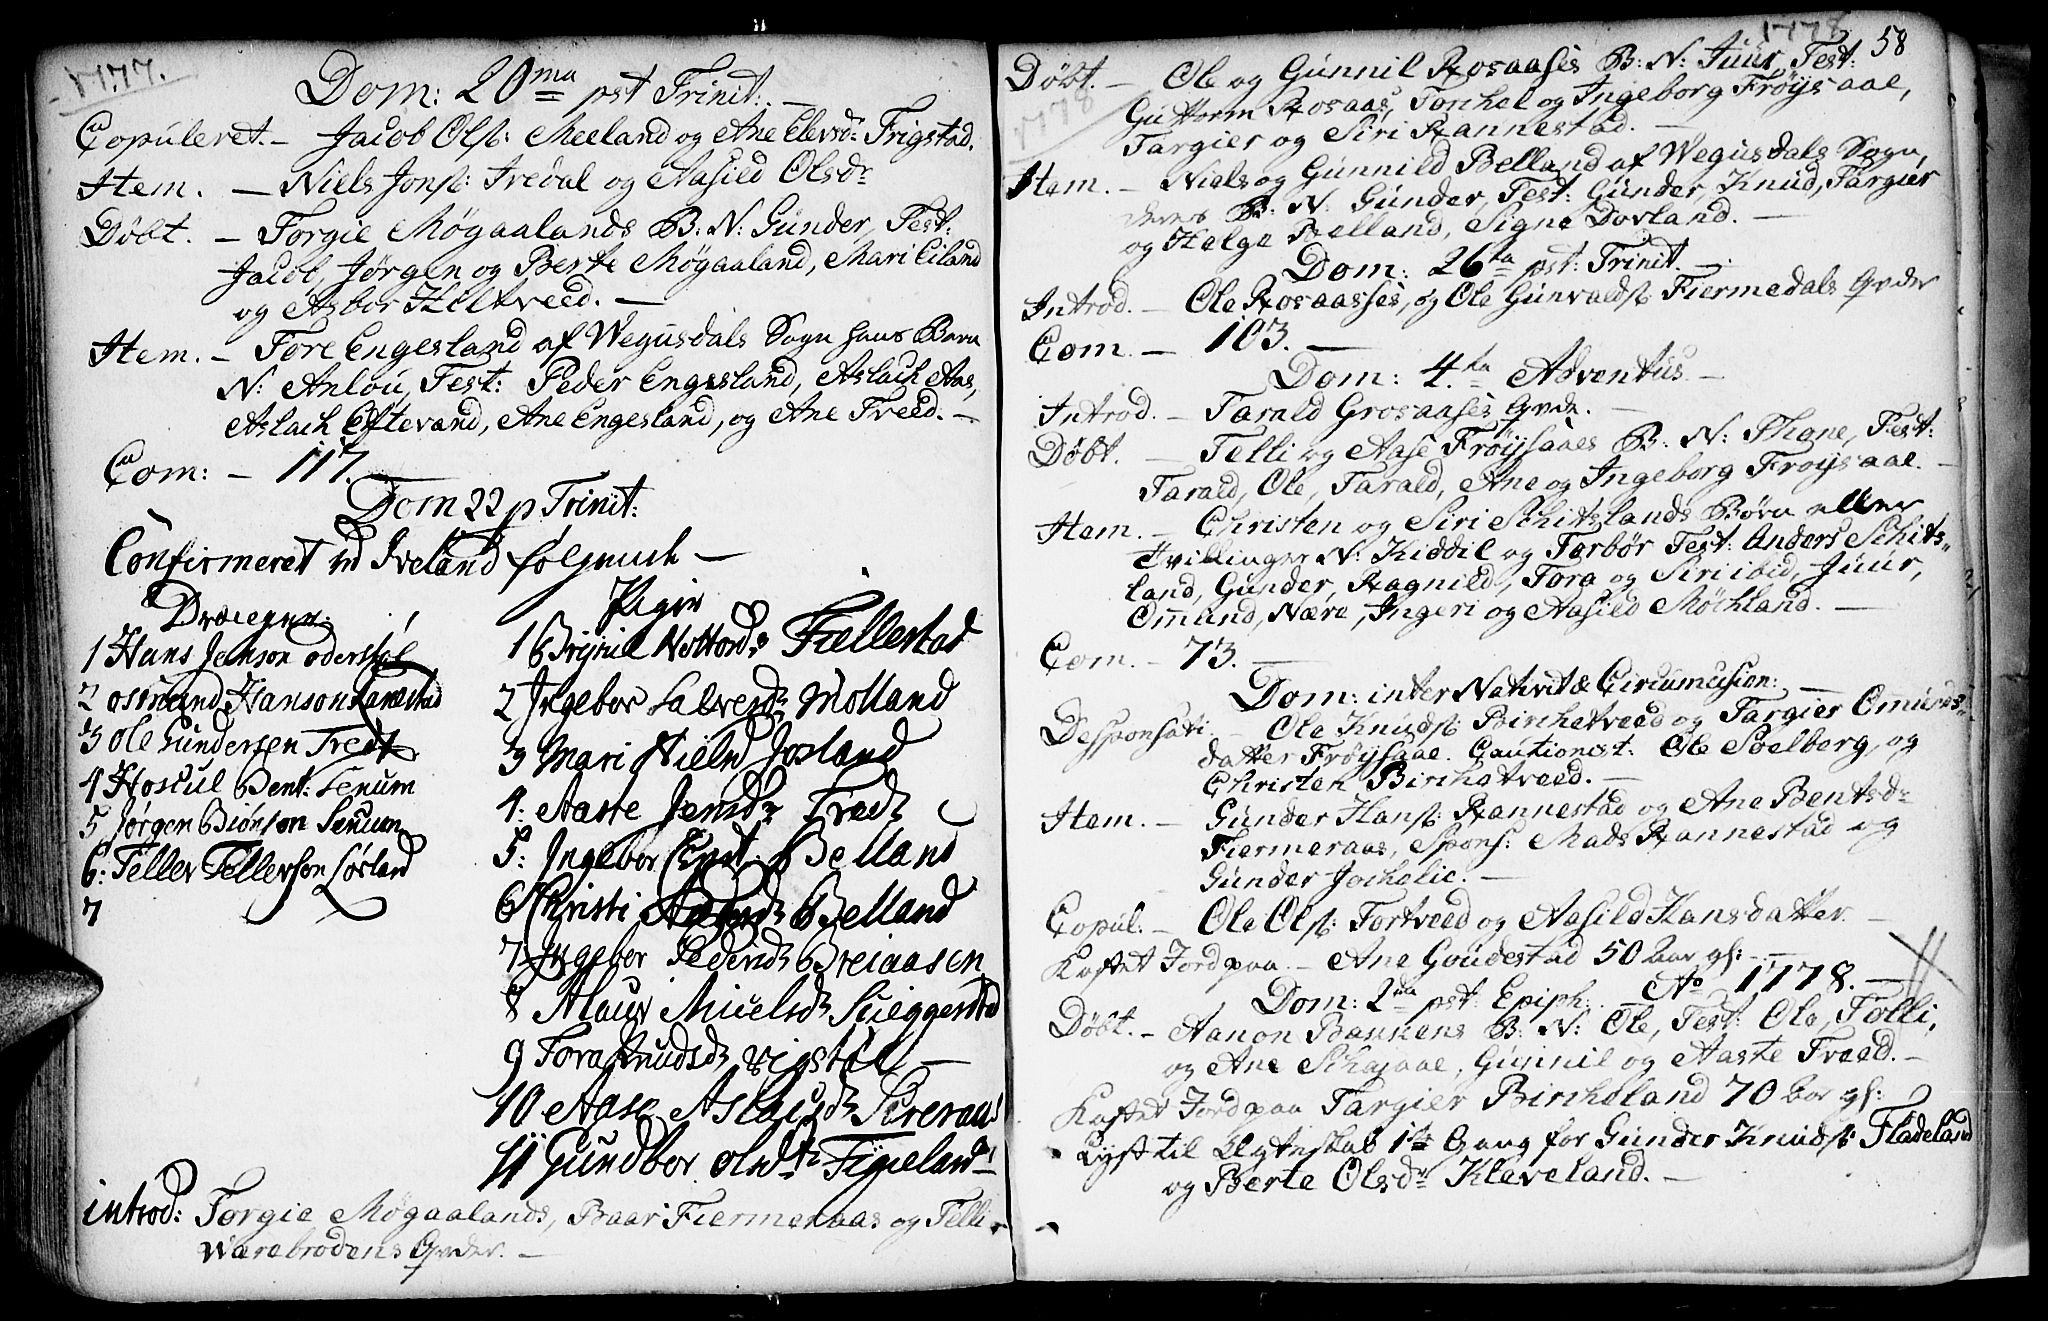 1777.
Dom: 20ma pst Trinit: —
Copuleret. — Jacob Ols: Meeland og Ane Elevsd: Frigstad.
Item. — Niels Jons: Iredal og Aasild Olsdr
Döbt. — Torgie Mögaalands B: N: Gunder, Test:
Jacob, Jørgen og Berte Mögaaland, Mari Eiland
og Asbor Hiltveed. —
Item. — Tore Engesland af Wegusdals Sogn hans Barn
N: Anlou, Test: Peder Engesland, Aslach Aas,
Aslach Eftevand, Ane Engesland, og Ane Treed. —
Com: — 117.
Dom 22 p Trinit:
Confirmeret vd Iveland følgende —
Drænger:
1 Hans Jenson oderstøl
2 osmund Hanson
3 Ole Gundersen Tredt
4 Hoskul Bent: Senum
5 Jørgen Biönson Senum
6: Tellev Tellevson Løsland
7
Piger
1 Brynil Fiellestad
2 Ingebor Salvesd: Molland
3 Mari Nielsd Josland
4: Aaste Jensd: Tredt
5: Ingebor Belland
6 Christi Belland
7 Ingebor Pedersd: Breiaasen
8 Alaur Nielsd: Skieggestad
9 Tora Knudsd: vigstøl —
10 Aase Aslacsd:
11 Gundbor olsd:
introd: Torgie Mögaalands, Baar Fiermeraas og Telli
Warebrodens Qvder. —
1778. 58
Döbt. — Ole og Gunnil Rosaases B: N: Juur, Test:
1778
Guttorm Rosaas, Torkel og Ingeborg Fröysaae,
Targier og Siri Rannestad. —
Item. — Niels og Gunnild Belland af Wegusdals Sogn,
deres B: N: Gunder, Test: Gunder, Knud, Targier
og Helge Belland, Signe Dovland. —
Dom: 26ta pst: Trinit. —
Introd. — Ole Rosaases, og Ole Gunvalds: Fiermedals Qvder
Com. — 103. —
Dom: 4.ta Adventus. —
Introd. — Tarald Grosaases Qvde. —
Döbt. — Telli og Aase Fröysaaes B: N: Thone, Test:
Tarald, Ole, Tarald, Ane og Ingeborg Fröysaae. —
Item. — Christen og Siri Schitslands Börn eller
Tvillinger N: Kiddil og Torbör Test: Anders Schits-
land, Gunder, Ragnild, Tora og Siri ibid, Juur,
Omund, Nære, Ingeri og Aasild Möchland. —
Com. — 73. —
Dom: inter Nativit & Circumcision: —
Desponsati. — Ole Knuds: Birchetveed og Targier Omunds-
datter Fröysaae. Cautionist: Ole Solberg, og
Christen Birchetveed. —
Item. — Gunder Hans: Rannestad og Ane Bentsdr
Fiermeraas, Spons: Mads Rannestad og
Gunder Jocholie. —
Copul. — Ole Ols: Tortveed og Aasild Hansdatter. —
Kastet Jord paa. — Ane Goudestad 50 Aar gl: —
Ao 1778. —
Dom: 2da pst: Epiph:
Döbt. — Aanon Bakkens B: N: Ole, Test: Ole, Tolli,
og Ane Schajaae, Gunnil og Aaste Treed. —
Kastet Jord paa Targier Birkeland 70 Aar gl:
Lyst til Ægteskab 1te Gang for Gunder Knuds: Fladeland
og Berte Olsdr Kleveland. —